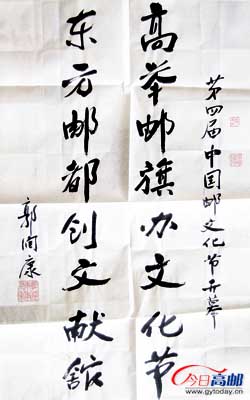 第四届中国邮文化节开幕
高举邮旗办文化节
东方邮都创文献馆
郭向康
今日高邮
www.gytoday.cn